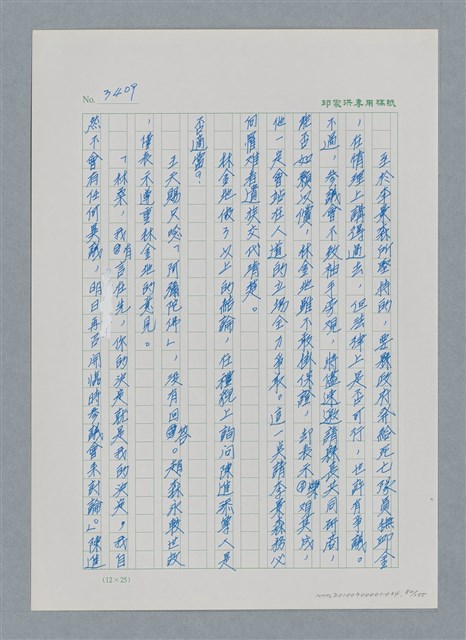 No. 3409
邱家洪專用稿紙
至於李東森所堅持的，要縣政府發給死亡隊員撫卹金
，在情理上講得過去，但法律上是否可行，也許有爭議。
不過，參議會不敢袖手旁觀，將儘速邀請縣長共同研商，
能否如願以償，林金地雖不敢掛保證，却表示樂觀其成，
他一定會站在人道的立場全力爭取。這一點請李東森務必
向罹難者遺族交代清楚。
林金地做了以上的結論，在禮貌上詢問陳進添等人是
否適當？
王天賜只唸「阿彌陀佛」，沒有回答。趙森永數世故
，僅表示遵重林金地的意見。
「林桑，我有言在先，你的決定就是我的決定，我自
然不會有任何異議，明日再召開臨時參議會來討論。」陳進
(12×25)